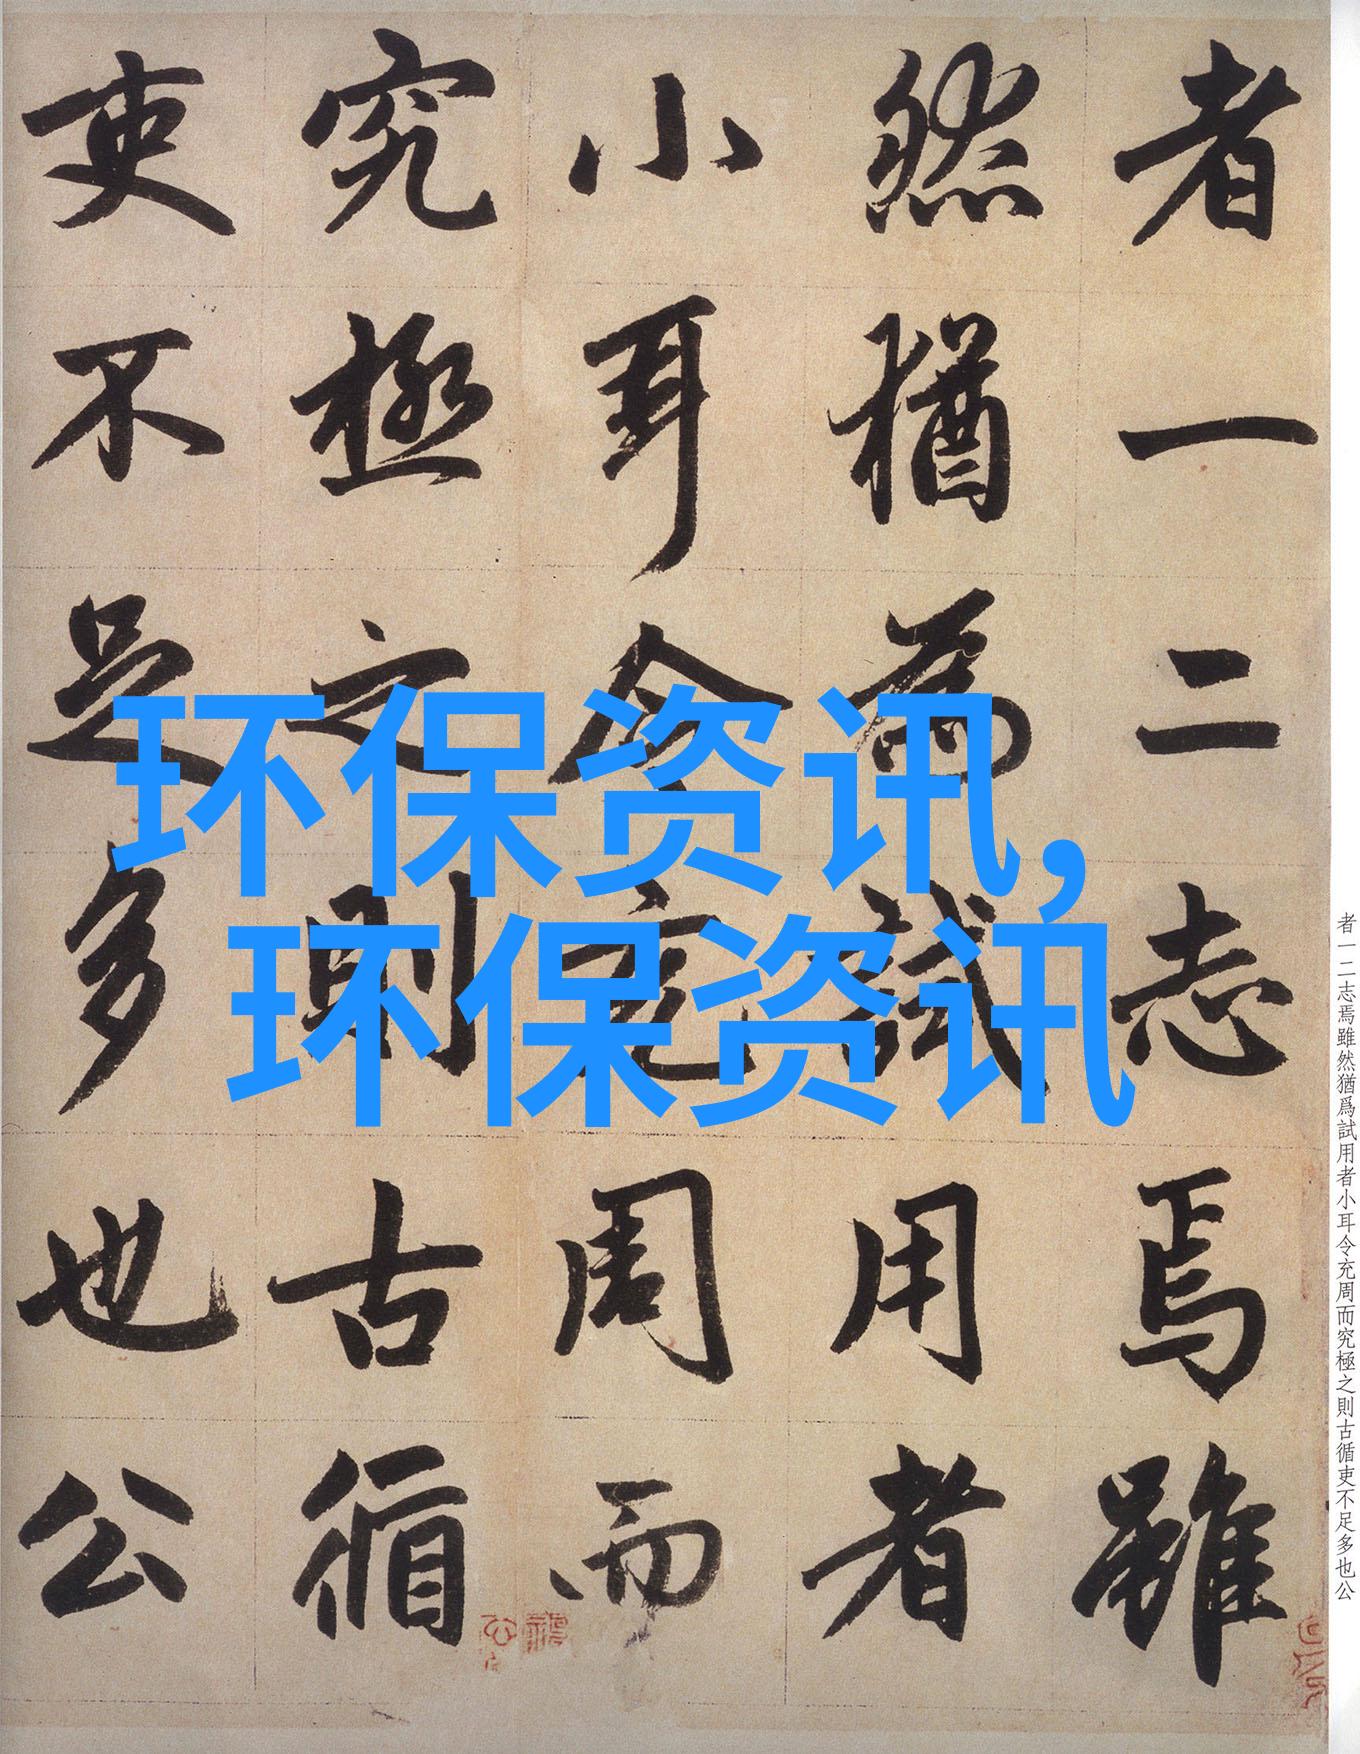 环保资讯，
环保资讯
者一二志焉雖
然猶為試用者
小耳令充周而
究極之則古循
吏不足多也公
者一二志焉雖然猶爲試用者小耳令充周而究極之則古循吏不足多也公